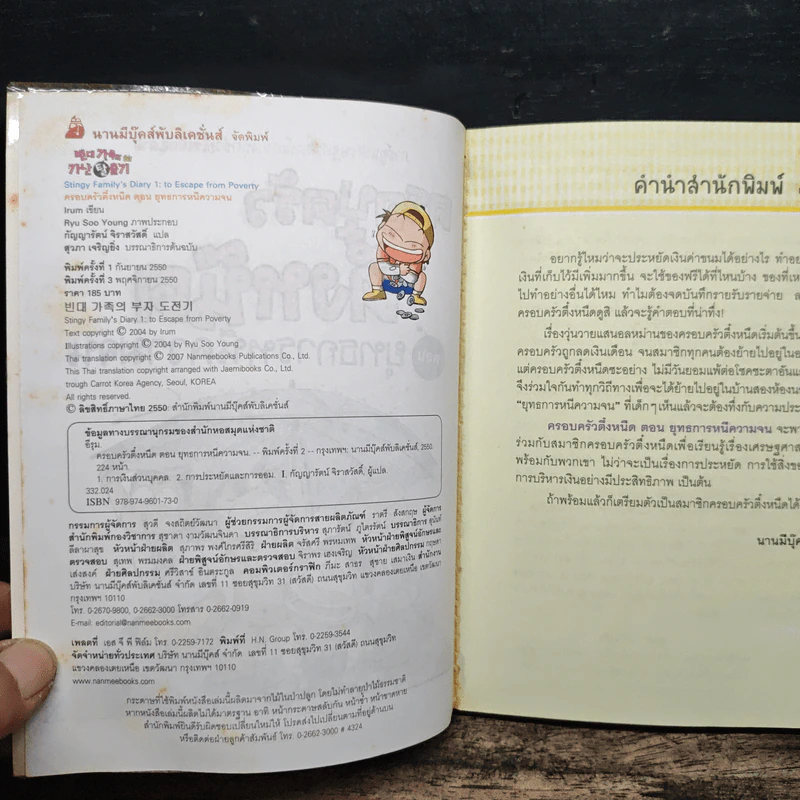 นานมีบุ๊คส์พับลิเคชั่นส์ จัดพิมพ์
Stingy Family's Diary 1: to Escape from Poverty
ครอบครัวตึ๋งหนืด ตอน ยุทธการหนีความจน
Irum เขียน
Ryu Soo Young ภาพประกอบ
กัญญารัตน์ จิราสวัสดิ์ แปล
สุวภา เจริญยิ่ง บรรณาธิการต้นฉบับ
พิมพ์ครั้งที่ 1 กันยายน 2550
พิมพ์ครั้งที่ 3 พฤศจิกายน 2550
ราคา 185 บาท
빈대 가족의 부자 도전기
Stingy Family's Diary 1: to Escape from Poverty
Text copyright © 2004 by Irum
Illustrations copyright © 2004 by Ryu Soo Young
Thai translation copyright © 2007 Nanmeebooks Publications Co., Ltd.
This Thai translation copyright arranged with Jaemibooks Co., Ltd.
trough Carrot Korea Agency, Seoul, KOREA
All rights reserved.
© ลิขสิทธิ์ภาษาไทย 2550: สำนักพิมพ์นานมีบุ๊คส์พับลิเคชั่นส์
ข้อมูลทางบรรณานุกรมของสำนักหอสมุดแห่งชาติ
อีรุม.
ครอบครัวตึ๋งหนืด ตอน ยุทธการหนีความจน. -- พิมพ์ครั้งที่ 2 -- กรุงเทพฯ: นานมีบุ๊คส์พับลิเคชั่นส์, 2550.
224 หน้า.
1. การเงินส่วนบุคคล. 2. การประหยัดและการออม. I. กัญญารัตน์ จิราสวัสดิ์, ผู้แปล.
332.024
ISBN 978-974-9601-73-0
กรรมการผู้จัดการ สุวดี จงสถิตย์วัฒนา ผู้ช่วยกรรมการผู้จัดการสายผลิตภัณฑ์ ราตรี สังสกฤษ ผู้จัดการ
สำนักพิมพ์กองวิชาการ สุชาดา งามวัฒนจินดา บรรณาธิการบริหาร สุภารัตน์ ภูไตรรัตน์ บรรณาธิการ
ลีลาผาสุข หัวหน้าฝ่ายผลิต สุภาพร พงศ์ไกรศรีสิริ ฝ่ายผลิต จรัสศรี พรหมเทพ หัวหน้าฝ่ายพิสูจน์อักษรและ
ตรวจสอบ สุเทพ พรมมงคล ฝ่ายพิสูจน์อักษรและตรวจสอบ จิราพร เฮงเจริญ หัวหน้าฝ่ายศิลปกรรม กฤษดา
เส่งสงค์ ฝ่ายศิลปกรรม ศรีวิสาข์ อินตระกูล คอมพิวเตอร์กราฟิก ภีมะ สายร สุชาย เสมาเงิน สำนักงาน
บริษัท นานมีบุ๊คส์พับลิเคชั่นส์ จำกัด เลขที่ 11 ซอยสุขุมวิท 31 (สวัสดี) ถนนสุขุมวิท แขวงคลองเตยเหนือ เขตวัฒนา
กรุงเทพฯ 10110
โทร. 0-2670-9800, 0-2662-3000 โทรสาร 0-2662-0919
E-mail: editorial@nanmeebooks.com
เพลตที่ เอส จี พี ฟิล์ม โทร. 0-2259-7172 พิมพ์ที่ H.N. Group โทร. 0-2259-3544
จัดจำหน่ายทั่วประเทศ บริษัท นานมีบุ๊คส์ จำกัด เลขที่ 11 ซอยสุขุมวิท 31 (สวัสดี) ถนนสุขุมวิท
แขวงคลองเตยเหนือ เขตวัฒนา กรุงเทพฯ 10110
www.nanmeebooks.com
กระดาษที่ใช้พิมพ์หนังสือเล่มนี้ผลิตมาจากไม้ในป่าปลูก โดยไม่ทำลายป่าไม้ธรรมชาติ
หากหนังสือเล่มนี้ผลิตไม่ได้มาตรฐาน อาทิ หน้ากระดาษสลับกัน หน้าซ้ำ หน้าขาดหาย
สำนักพิมพ์ยินดีรับผิดชอบเปลี่ยนใหม่ให้ โปรดส่งไปเปลี่ยนตามที่อยู่ด้านบน
หรือติดต่อฝ่ายลูกค้าสัมพันธ์ โทร. 0-2662-3000 # 4324
คำนำสำนักพิมพ์
อยากรู้ไหมว่าจะประหยัดเงินค่าขนมได้อย่างไร
เงินที่เก็บไว้มีเพิ่มมากขึ้น จะใช้ของฟรีได้ที่ไหนบ้าง
ไปทำอย่างอื่นได้ไหม ทำไมต้องจดบันทึกรายรับรายจ่าย
ครอบครัวตึ๋งหนืดดูสิ แล้วจะรู้คำตอบที่น่าทึ่ง!
เรื่องวุ่นวายแสนอลหม่านของครอบครัวตึ๋งหนืดเริ่มต้นขึ้น
ครอบครัวถูกลดเงินเดือน จนสมาชิกทุกคนต้องย้ายไปอยู่ใน
แต่ครอบครัวตึ๋งหนืดซะอย่าง ไม่มีวันยอมแพ้ต่อโชคชะตา
จึงร่วมใจกันทำทุกวิถีทางเพื่อจะได้ย้ายไปอยู่ในบ้านสองห้อง
"ยุทธการหนีความจน" ที่เด็กๆ เห็นแล้วจะต้องทึ่งกับความ
ครอบครัวตึ๋งหนืด ตอน ยุทธการหนีความจน
ร่วมกับสมาชิกครอบครัวตึ๋งหนืดเพื่อเรียนรู้เรื่อง
พร้อมกับพวกเขา ไม่ว่าจะเป็นเรื่องการประหยัด
การบริหารเงินอย่างมีประสิทธิภาพ เป็นต้น
ถ้าพร้อมแล้วก็เตรียมตัวเป็นสมาชิกครอบครัวตึ๋งหนืดได้